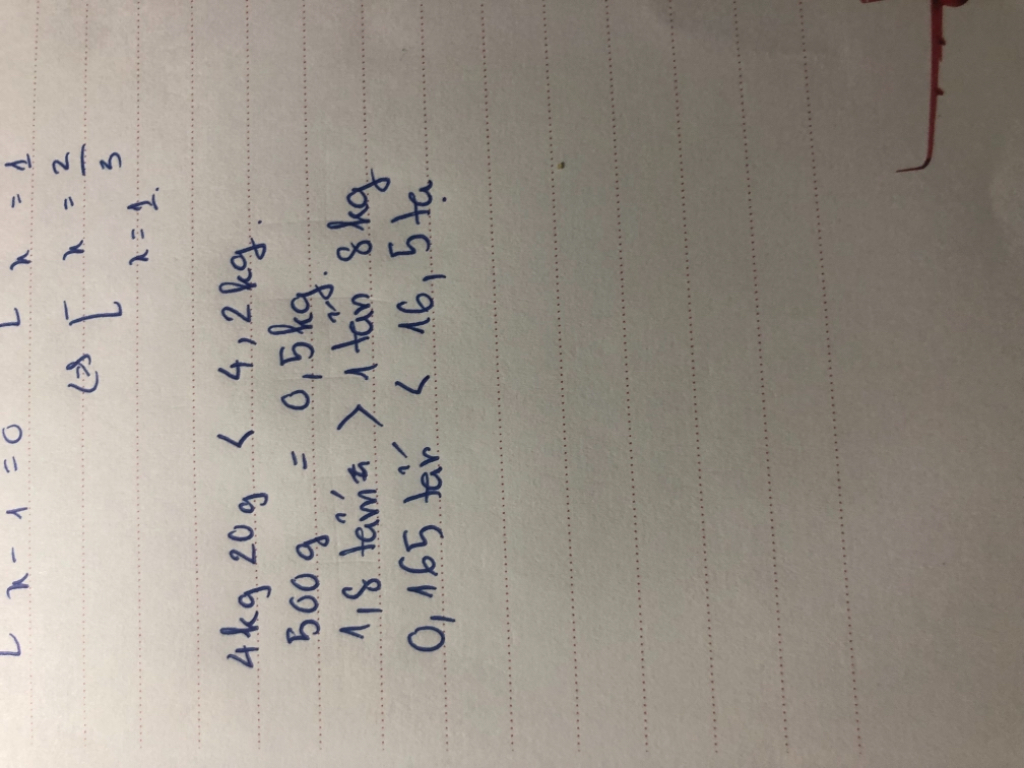 [ x - 1 = 0 [ x = 1
<=> [ x = 2/3
x = 1.
4kg 20g < 4,2kg.
500g = 0,5kg.
1,8 tấn > 1 tấn 8kg
0,165 tấn < 16,5 tạ